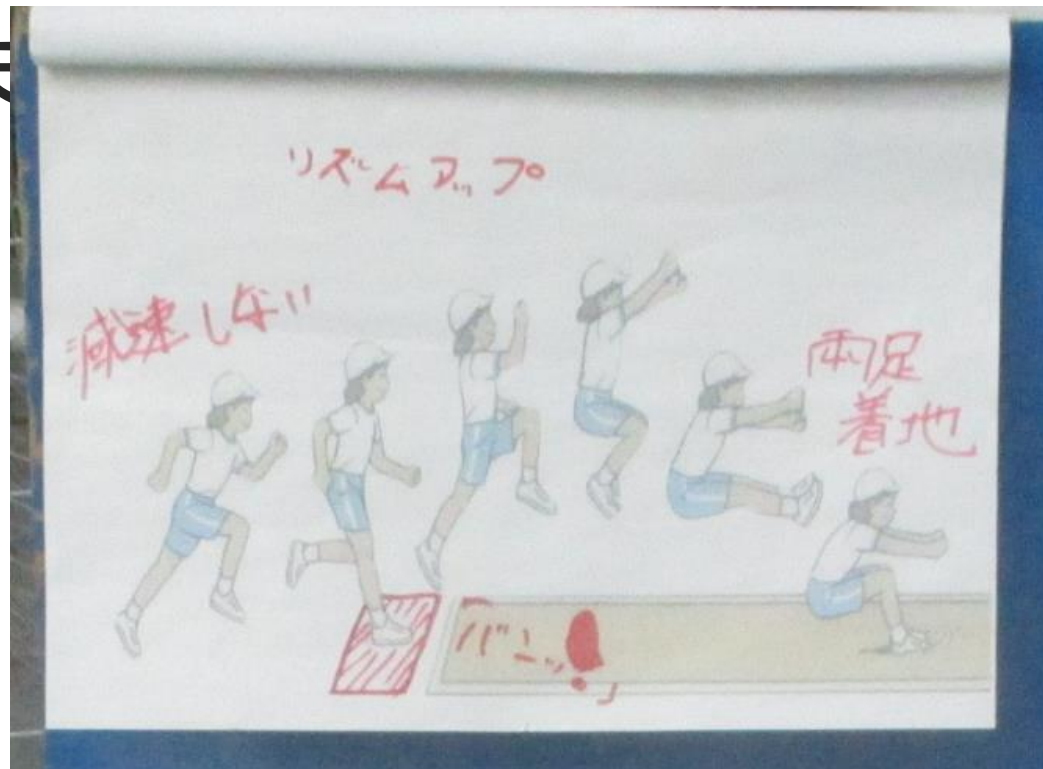 リズムアップ
減速しない
両足
着地
「バンッ!」